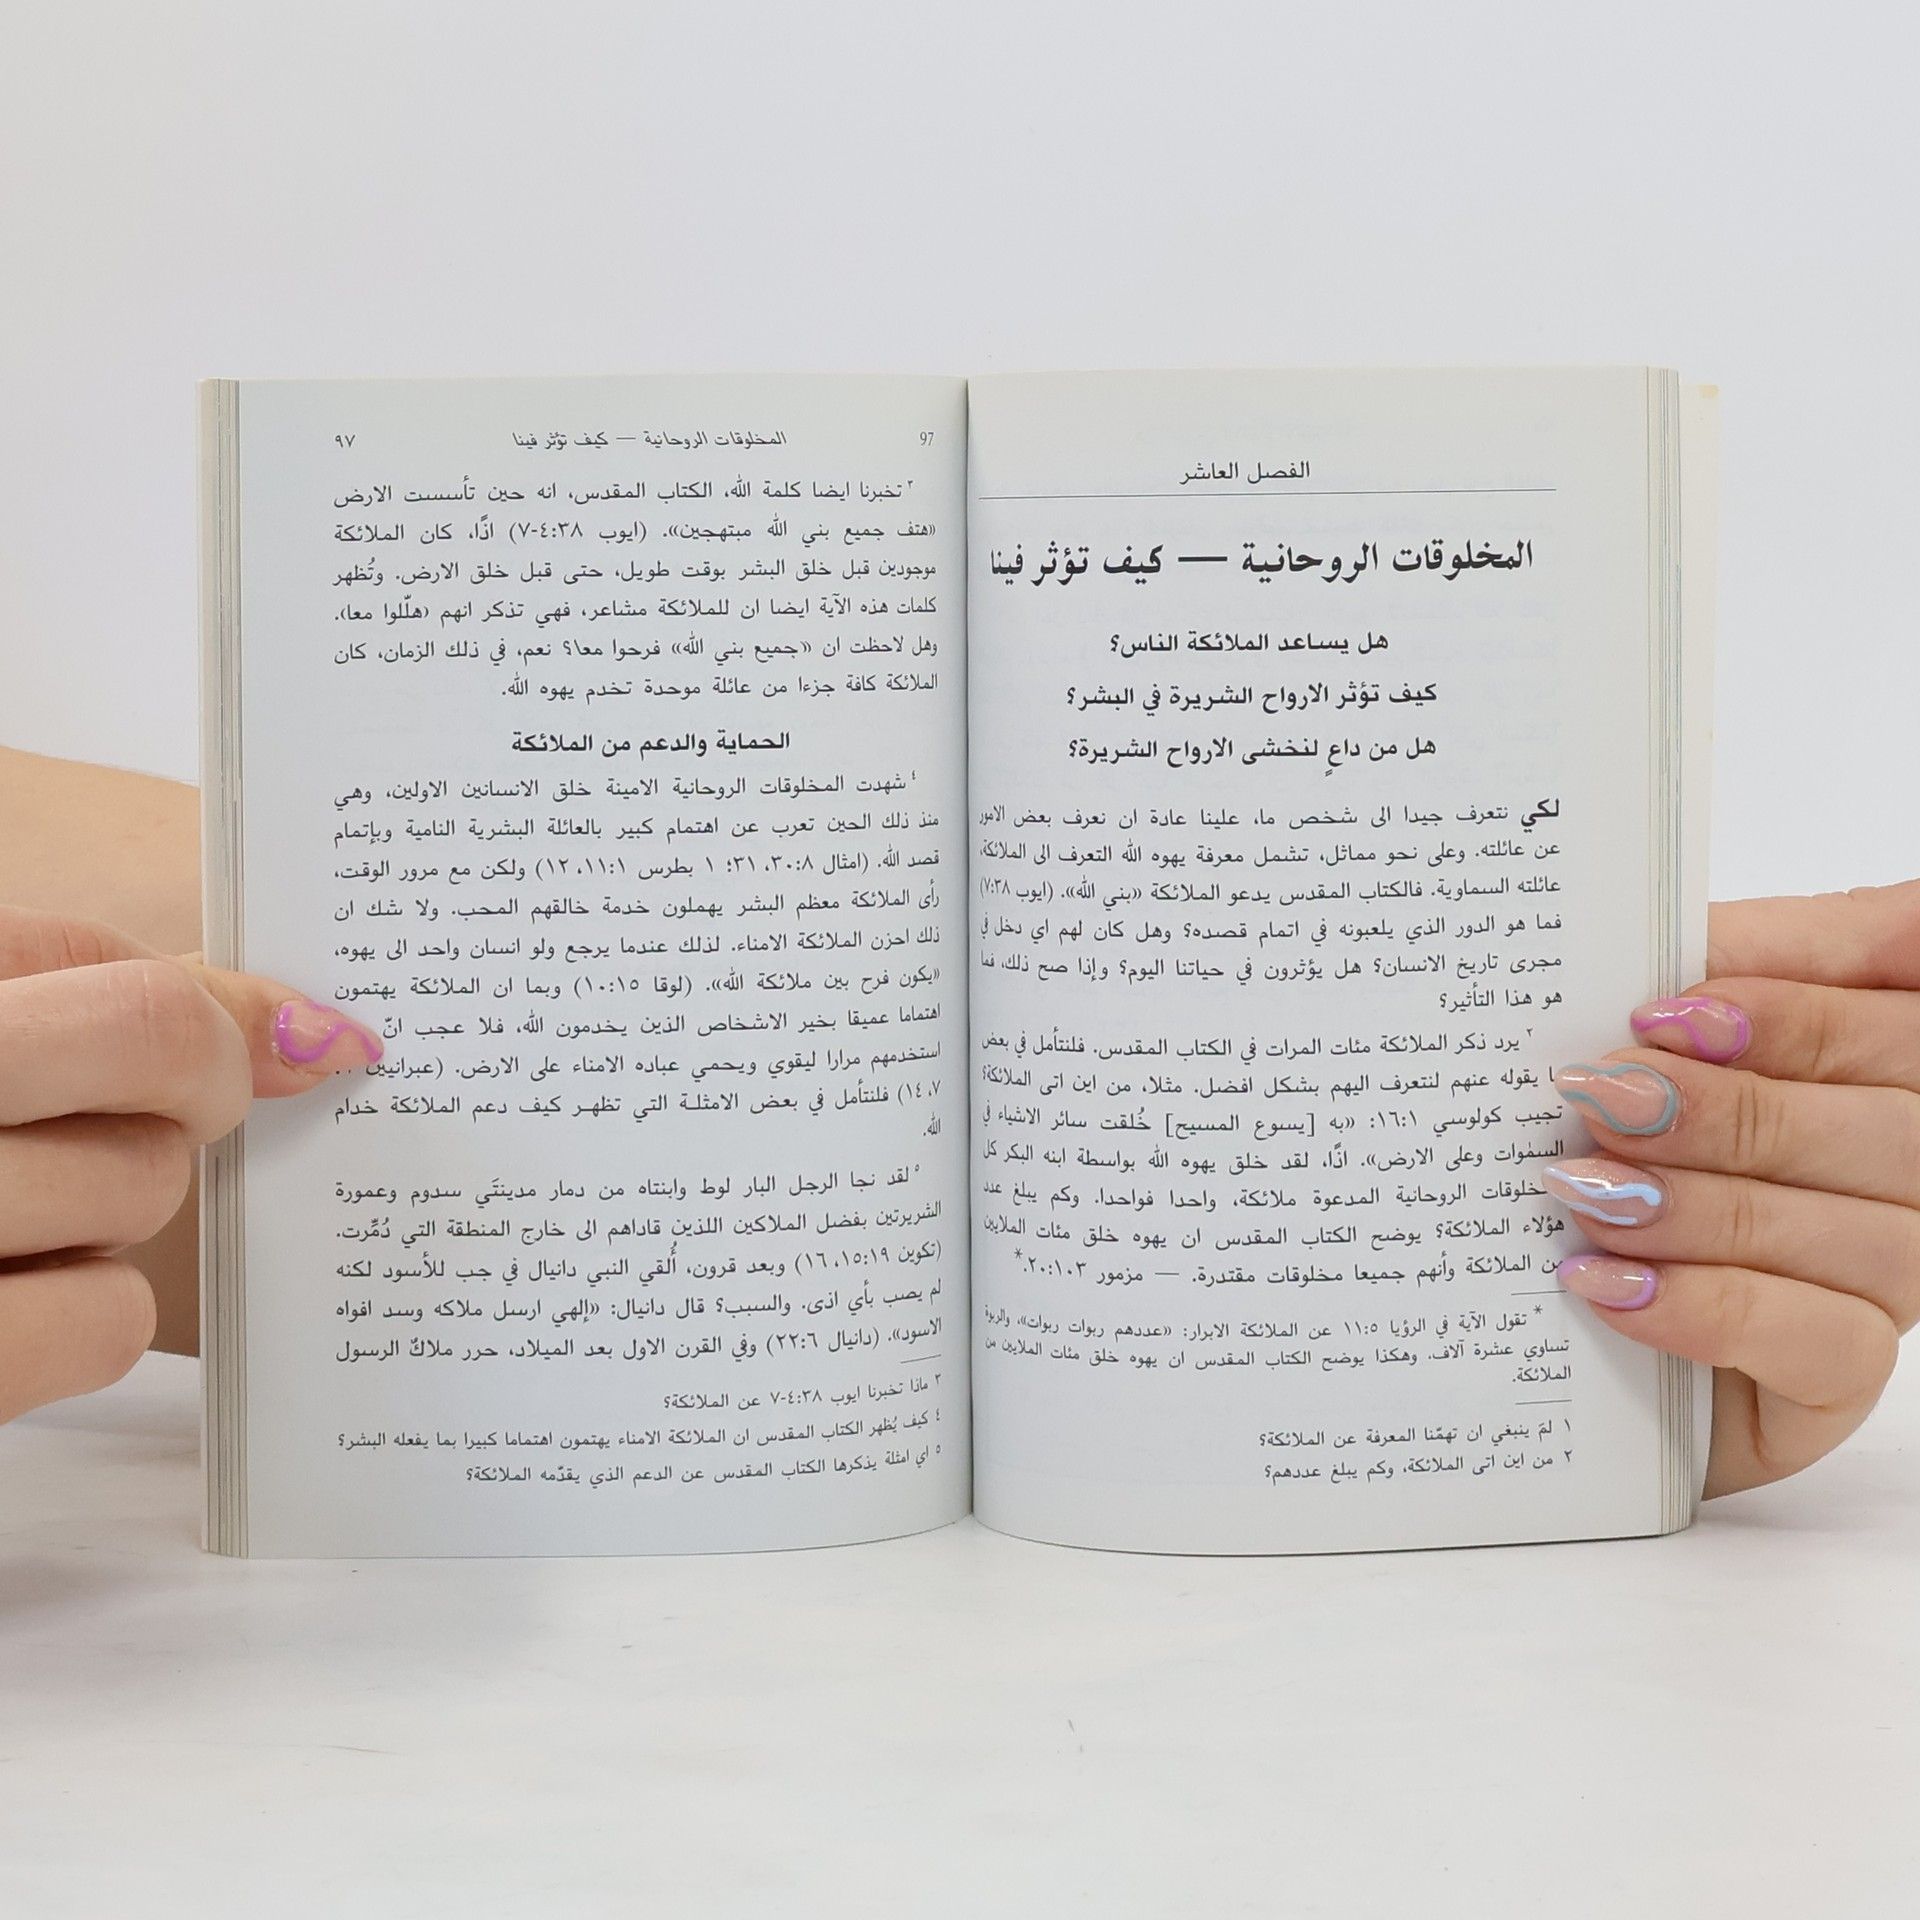 الفصل العاشر
المخلوقات الروحانية — كيف تؤثر فينا
هل يساعد الملائكة الناس؟
كيف تؤثر الارواح الشريرة في البشر؟
هل من داعٍ لنخشى الارواح الشريرة؟
لكي نتعرف جيدا الى شخص ما، علينا عادة ان نعرف بعض الامور
عن عائلته. وعلى نحو مماثل، تشمل معرفة يهوه الله التعرف الى الملائكة،
عائلته السماوية. فالكتاب المقدس يدعو الملائكة «بني الله». (ايوب ٣٨:٧)
فما هو الدور الذي يلعبونه في اتمام قصده؟ وهل كان لهم اي دخل في
مجرى تاريخ الانسان؟ هل يؤثرون في حياتنا اليوم؟ وإذا صح ذلك، فما
هو هذا التأثير؟
٢ يرد ذكر الملائكة مئات المرات في الكتاب المقدس. فلنتأمل في بعض
يقوله عنهم لنتعرف اليهم بشكل افضل. مثلا، من اين اتى الملائكة؟
تجيب كولوسي ١:١٦: «به [يسوع المسيح] خُلقت سائر الاشياء في
السمٰوات وعلى الارض». اذًا، لقد خلق يهوه الله بواسطة ابنه البكر كل
الروحانية المدعوة ملائكة، واحدا فواحدا. وكم يبلغ عدد
هؤلاء الملائكة؟ يوضح الكتاب المقدس ان يهوه خلق مئات الملايين
من الملائكة وأنهم جميعا مخلوقات مقتدرة. — مزمور ١٠٣:٢٠.*
* تقول الآية في الرؤيا ٥:١١ عن الملائكة الابرار: «عددهم ربوات ربوات»، والربوة
تساوي عشرة آلاف. وهكذا يوضح الكتاب المقدس ان يهوه خلق مئات الملايين من
الملائكة.
١ لمَ ينبغي ان تهمّنا المعرفة عن الملائكة؟
٢ من اين اتى الملائكة، وكم يبلغ عددهم؟
97 المخلوقات الروحانية — كيف تؤثر فينا ٩٧
٣ تخبرنا ايضا كلمة الله، الكتاب المقدس، انه حين تأسست الارض
«هتف جميع بني الله مبتهجين». (ايوب ٣٨:٤-٧) اذًا، كان الملائكة
موجودين قبل خلق البشر بوقت طويل، حتى قبل خلق الارض. وتُظهر
كلمات هذه الآية ايضا ان للملائكة مشاعر، فهي تذكر انهم ‹هلّلوا معا›.
وهل لاحظت ان «جميع بني الله» فرحوا معا؟ نعم، في ذلك الزمان، كان
الملائكة كافة جزءا من عائلة موحدة تخدم يهوه الله.
الحماية والدعم من الملائكة
٤ شهدت المخلوقات الروحانية الامينة خلق الانسانين الاولين، وهي
منذ ذلك الحين تعرب عن اهتمام كبير بالعائلة البشرية النامية وبإتمام
قصد الله. (امثال ٨:٣٠، ٣١؛ ١ بطرس ١:١١، ١٢) ولكن مع مرور الوقت،
رأى الملائكة معظم البشر يهملون خدمة خالقهم المحب. ولا شك ان
ذلك احزن الملائكة الامناء. لذلك عندما يرجع ولو انسان واحد الى يهوه،
«يكون فرح بين ملائكة الله». (لوقا ١٥:١٠) وبما ان الملائكة يهتمون
اهتماما عميقا بخير الاشخاص الذين يخدمون الله، فلا عجب انّ
استخدمهم مرارا ليقوي ويحمي عباده الامناء على الارض. (عبرانيين
٧، ١٤) فلنتأمل في بعض الامثلة التي تظهر كيف دعم الملائكة خدام
الله.
٥ لقد نجا الرجل البار لوط وابنتاه من دمار مدينتَي سدوم وعمورة
الشريرتين بفضل الملاكين اللذين قاداهم الى خارج المنطقة التي دُمِّرت.
(تكوين ١٩:١٥، ١٦) وبعد قرون، أُلقي النبي دانيال في جب للأسود لكنه
لم يصب بأي اذى. والسبب؟ قال دانيال: «إلهي ارسل ملاكه وسد افواه
الاسود». (دانيال ٦:٢٢) وفي القرن الاول بعد الميلاد، حرر ملاكٌ الرسول
٣ ماذا تخبرنا ايوب ٣٨:٤-٧ عن الملائكة؟
٤ كيف يُظهر الكتاب المقدس ان الملائكة الامناء يهتمون اهتماما كبيرا بما يفعله البشر؟
٥ اي امثلة يذكرها الكتاب المقدس عن الدعم الذي يقدّمه الملائكة؟